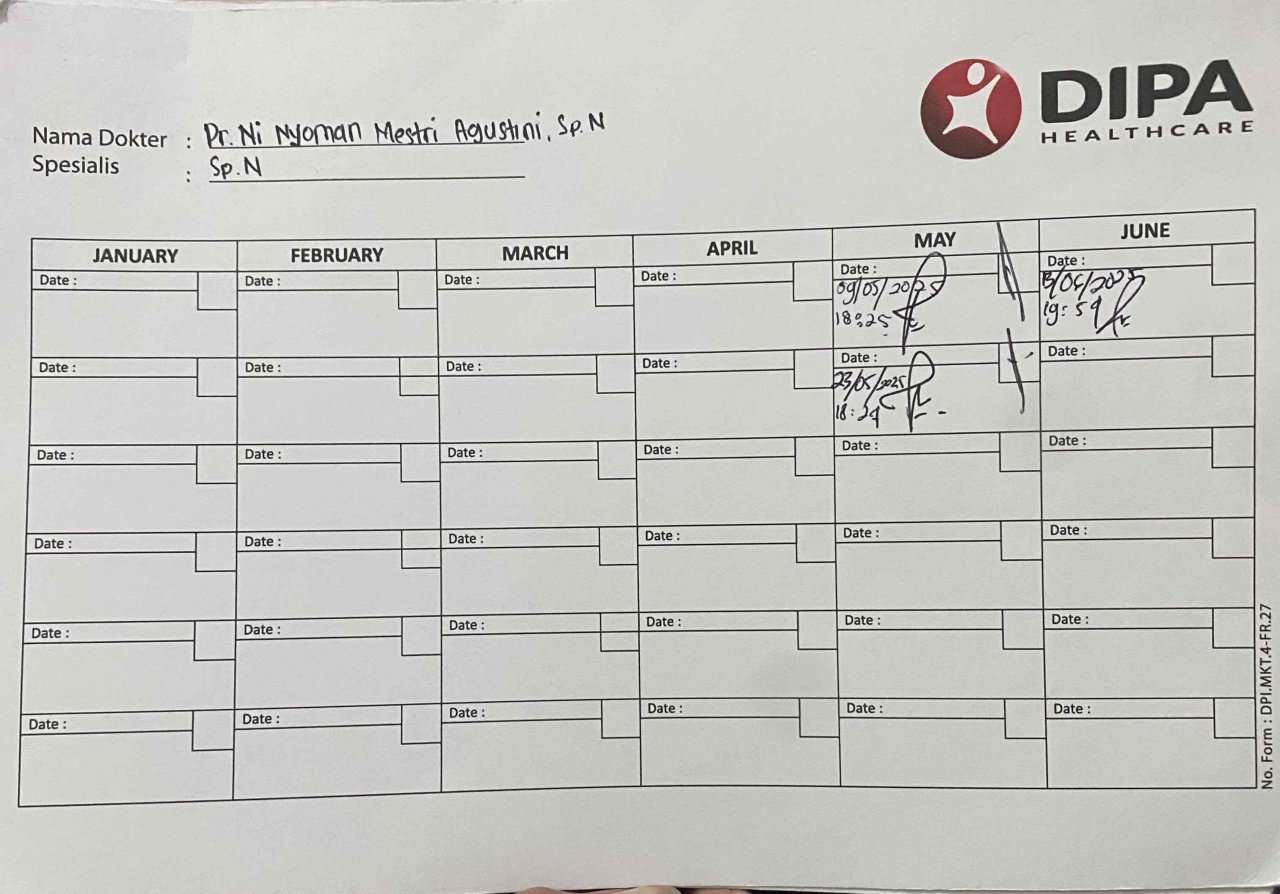 DIPA
HEALTHCARE
Nama Dokter : Dr. Ni Nyoman Mestri Agustini, Sp.N
Spesialis : Sp.N
JANUARY FEBRUARY MARCH APRIL MAY JUNE
Date : Date : Date : Date : Date : Date :
09/05/2025 13/06/2025
18:25 19:59
Date : Date : Date : Date : Date : Date :
23/05/2025
18:29
Date : Date : Date : Date : Date : Date :
Date : Date : Date : Date : Date : Date :
Date : Date : Date : Date : Date : Date :
Date : Date : Date : Date : Date : Date :
No. Form : DPI.MKT.4-FR.27